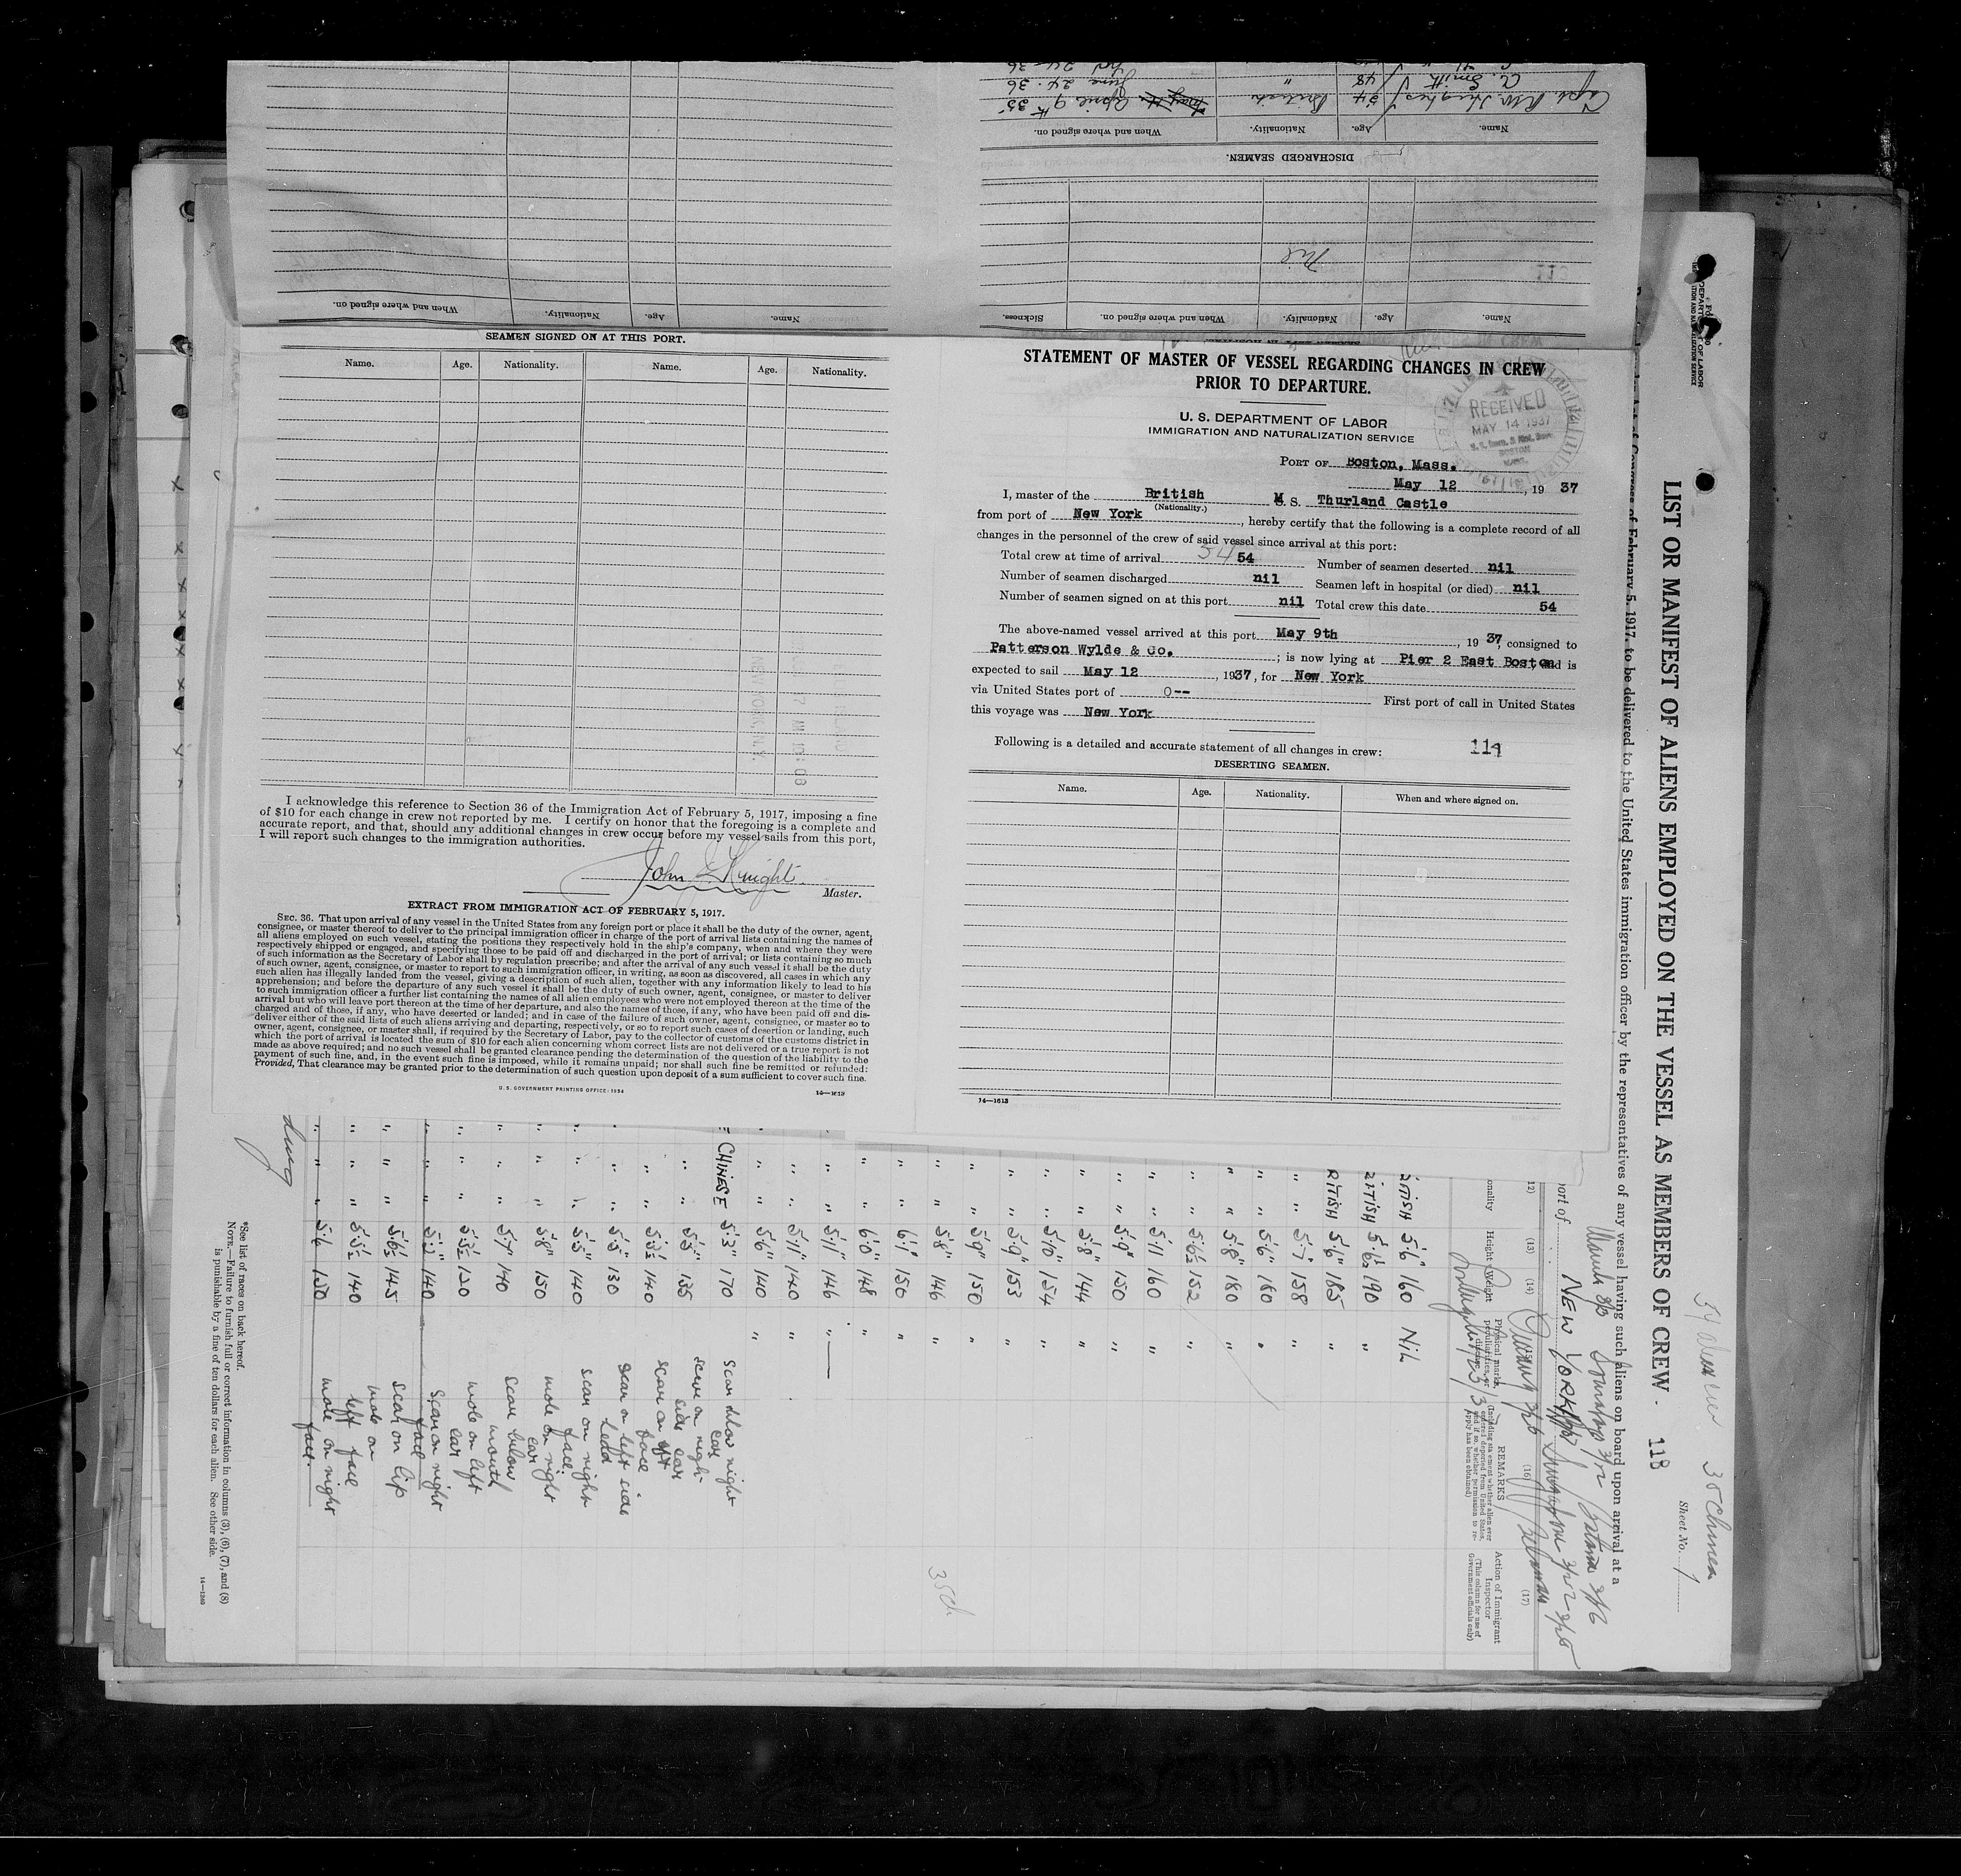 Capt. R.W. Hughes 34 British April 9th 35
A. Smith 48 " June 24. 36
Name. Age. Nationality. When and where signed on.
DISCHARGED SEAMEN.
Nil
113
Name. Age. Nationality. When and where signed on. Sickness.
Name. Age. Nationality. When and where signed on.
SEAMEN SIGNED ON AT THIS PORT.
Name. Age. Nationality. Name. Age. Nationality.
I acknowledge this reference to Section 36 of the Immigration Act of February 5, 1917, imposing a fine
of $10 for each change in crew not reported by me. I certify on honor that the foregoing is a complete and
accurate report, and that, should any additional changes in crew occur before my vessel sails from this port,
I will report such changes to the immigration authorities.
John G Knight
Master.
EXTRACT FROM IMMIGRATION ACT OF FEBRUARY 5, 1917.
SEC. 36. That upon arrival of any vessel in the United States from any foreign port or place it shall be the duty of the owner, agent,
consignee, or master thereof to deliver to the principal immigration officer in charge of the port of arrival lists containing the names of
all aliens employed on such vessel, stating the positions they respectively hold in the ship's company, when and where they were
respectively shipped or engaged, and specifying those to be paid off and discharged in the port of arrival; or lists containing so much
of such information as the Secretary of Labor shall by regulation prescribe; and after the arrival of any such vessel it shall be the duty
of such owner, agent, consignee, or master to report to such immigration officer, in writing, as soon as discovered, all cases in which any
such alien has illegally landed from the vessel, giving a description of such alien, together with any information likely to lead to his
apprehension; and before the departure of any such vessel it shall be the duty of such owner, agent, consignee, or master to deliver
to such immigration officer a further list containing the names of all alien employees who were not employed thereon at the time of the
arrival but who will leave port thereon at the time of her departure, and also the names of those, if any, who have been paid off and dis-
charged and of those, if any, who have deserted or landed; and in case of the failure of such owner, agent, consignee, or master so to
deliver either of the said lists of such aliens arriving and departing, respectively, or so to report such cases of desertion or landing, such
owner, agent, consignee, or master shall, if required by the Secretary of Labor, pay to the collector of customs of the customs district in
which the port of arrival is located the sum of $10 for each alien concerning whom correct lists are not delivered or a true report is not
made as above required; and no such vessel shall be granted clearance pending the determination of the question of the liability to the
payment of such fine, and, in the event such fine is imposed, while it remains unpaid; nor shall such fine be remitted or refunded:
Provided, That clearance may be granted prior to the determination of such question upon deposit of a sum sufficient to cover such fine.
U. S. GOVERNMENT PRINTING OFFICE: 1934
14—1613
STATEMENT OF MASTER OF VESSEL REGARDING CHANGES IN CREW
PRIOR TO DEPARTURE.
U. S. DEPARTMENT OF LABOR
IMMIGRATION AND NATURALIZATION SERVICE
RECEIVED
MAY 14 1937
BOSTON
MASS.
PORT OF Boston, Mass.
May 12, 1937
I, master of the British M. S. Thurland Castle
(Nationality.)
from port of New York, hereby certify that the following is a complete record of all
changes in the personnel of the crew of said vessel since arrival at this port:
Total crew at time of arrival 54 54 Number of seamen deserted nil
Number of seamen discharged nil Seamen left in hospital (or died) nil
Number of seamen signed on at this port nil Total crew this date 54
The above-named vessel arrived at this port May 9th, 1937, consigned to
Patterson Wylde & Co.; is now lying at Pier 2 East Boston and is
expected to sail May 12, 1937, for New York
via United States port of 0-- First port of call in United States
this voyage was New York
Following is a detailed and accurate statement of all changes in crew: 119
DESERTING SEAMEN.
Name. Age. Nationality. When and where signed on.
14—1613
LIST OR MANIFEST OF ALIENS EMPLOYED ON THE VESSEL AS MEMBERS OF CREW
118
Sheet No. 1
35 Chinese
Act of Congress of February 5, 1917, to be delivered to the United States immigration officer by the representatives of any vessel having such aliens on board upon arrival at a
port of NEW YORK
(12) (13) (14) (16) (17)
Height Weight
Physical marks, peculiarities, or disease
REMARKS
(Including statement whether alien ever ordered deported from United States, and if so, whether permission to re-apply has been obtained)
Action of Immigrant Inspector
(This column for use of Government officials only)
BRITISH 5'6" 160 NIL
BRITISH 5'6½ 190 "
BRITISH 5'6" 185 "
" 5'7" 158 "
" 5'6" 160 "
" 5'8" 180 "
" 5'6½ 152 "
" 5'11 160 "
" 5'9" 150 "
" 5'8" 144 "
" 5'10" 154 "
" 5'9" 153 "
" 5'9" 150 "
" 5'8" 146 "
" 6'1" 150 "
" 6'0" 148 "
" 5'11" 146 "
" 5'11" 140 "
" 5'6" 140 "
CHINESE 5'3" 170 scar below right ear
" 5'5" 135
" 5'3½ 140 scar on left face
" 5'5" 130 scar on left side head
" 5'5" 140 scar on right face
" 5'8" 150 mole on right ear
" 5'7 140 scar below mouth
" 5'5½ 120 mole on left ear
" 5'2" 140 scar on right face
" 5'6½ 145 scar on lip
" 5'5½ 140 mole on left face
" 5'6 150 mole on right face.
35 ch
*See list of races on back hereof.
NOTE.—Failure to furnish full or correct information in columns (3), (6), (7), and (8)
is punishable by a fine of ten dollars for each alien. See other side.
14—1280